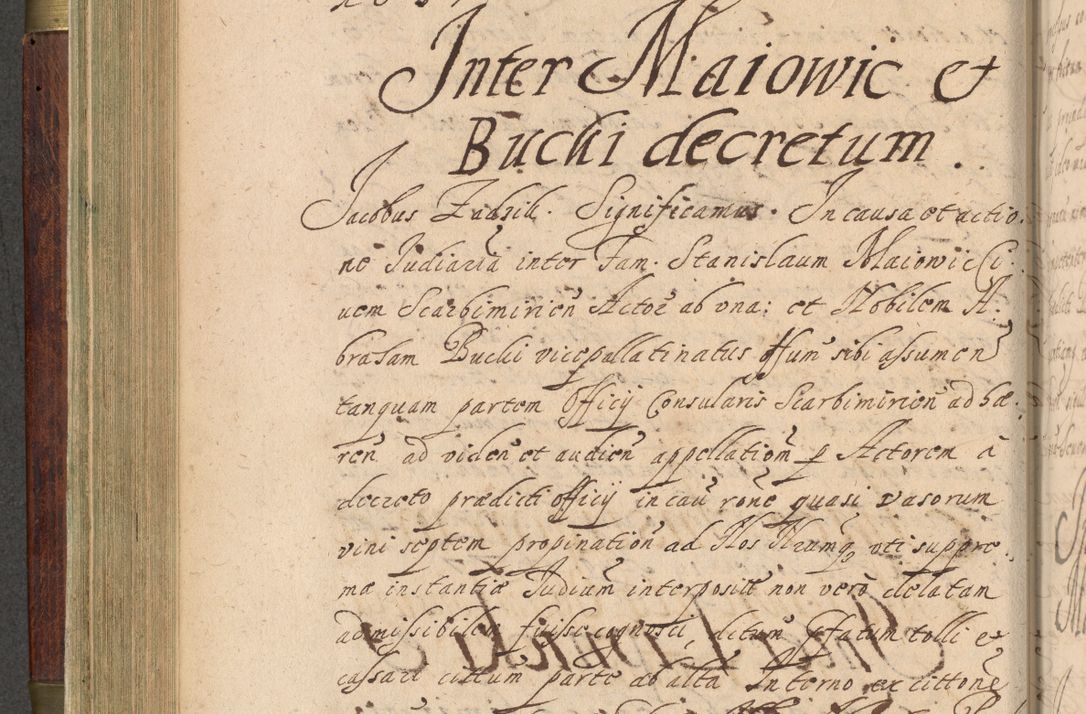 Inter Maiowic et
Bucki decretum.
Jacobus Zadzik. Significamus. In causa et actio
ne Judiaria inter Fam. Stanislaum Maiowic Ci
uem Scarbimirien Actore ab vna: et Nobilem A
braham Bucki vicepallatinatus offum sibi assumen
tanquam partem Officij Consularis Scarbimirien ad hæ
ren ad viden et audien appellation p Actorem a
decreto prædicti officij in cau rone quasi vasorum
vini septem propination ad Nos Nrumq vti suppre
mæ instantiæ Judiam interposit non vero delatam
admissibilem fuisse cognosci, ditum tolli et
cassari citum parte ab alta Interno ex cittone